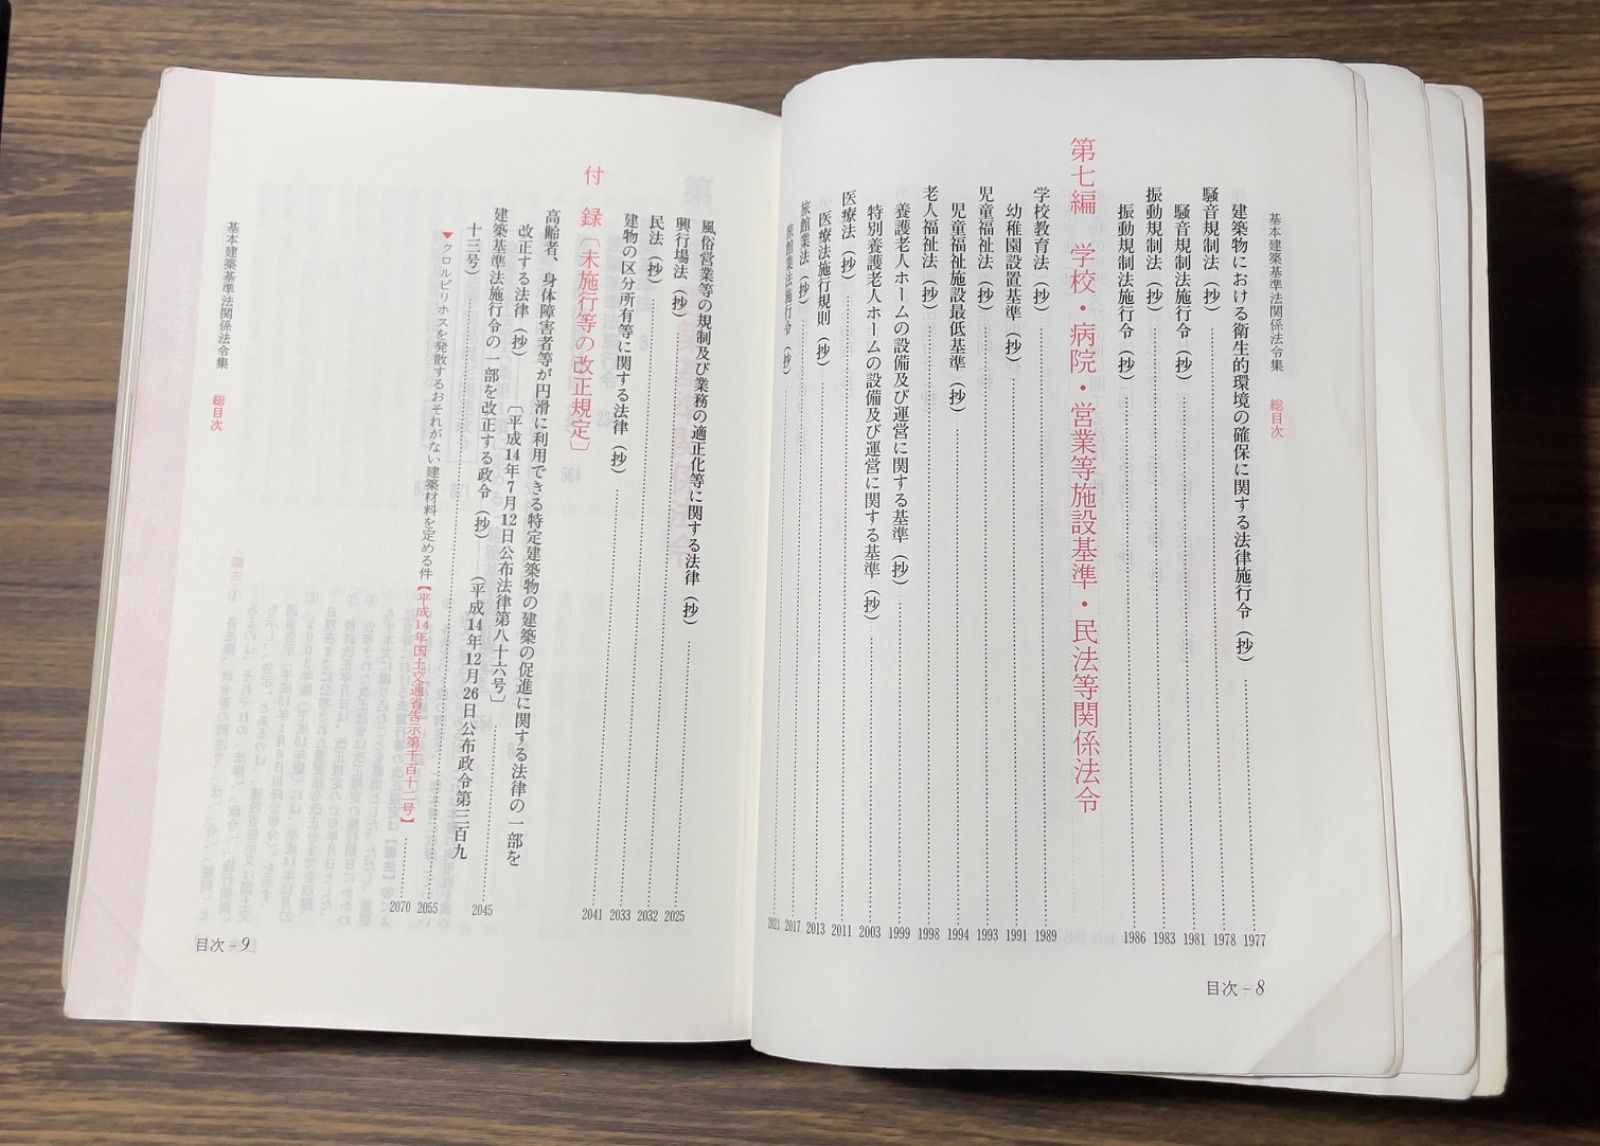 基本建築基準法関係法令集　総目次
建築物における衛生的環境の確保に関する法律施行令（抄）……1977
騒音規制法（抄）……1978
騒音規制法施行令（抄）……1981
振動規制法（抄）……1983
振動規制法施行令（抄）……1986
第七編　学校・病院・営業等施設基準・民法等関係法令
学校教育法（抄）……1989
幼稚園設置基準（抄）……1991
児童福祉法（抄）……1993
児童福祉施設最低基準（抄）……1994
老人福祉法（抄）……1998
養護老人ホームの設備及び運営に関する基準（抄）……1999
特別養護老人ホームの設備及び運営に関する基準（抄）……2003
医療法（抄）……2011
医療法施行規則（抄）……2013
旅館業法（抄）……2017
旅館業法施行令（抄）……2021
目次－8
風俗営業等の規制及び業務の適正化等に関する法律（抄）……2025
興行場法（抄）……2032
民法（抄）……2033
建物の区分所有等に関する法律（抄）……2041
付　録〔未施行等の改正規定〕
高齢者、身体障害者等が円滑に利用できる特定建築物の建築の促進に関する法律の一部を
改正する法律（抄）――〔平成14年7月12日公布法律第八十六号〕……2045
建築基準法施行令の一部を改正する政令（抄）――（平成14年12月26日公布政令第三百九
十三号）……2055
▼クロルピリホスを発散するおそれがない建築材料を定める件【平成14年国土交通省告示第千百十二号】……2070
基本建築基準法関係法令集　総目次
目次－9